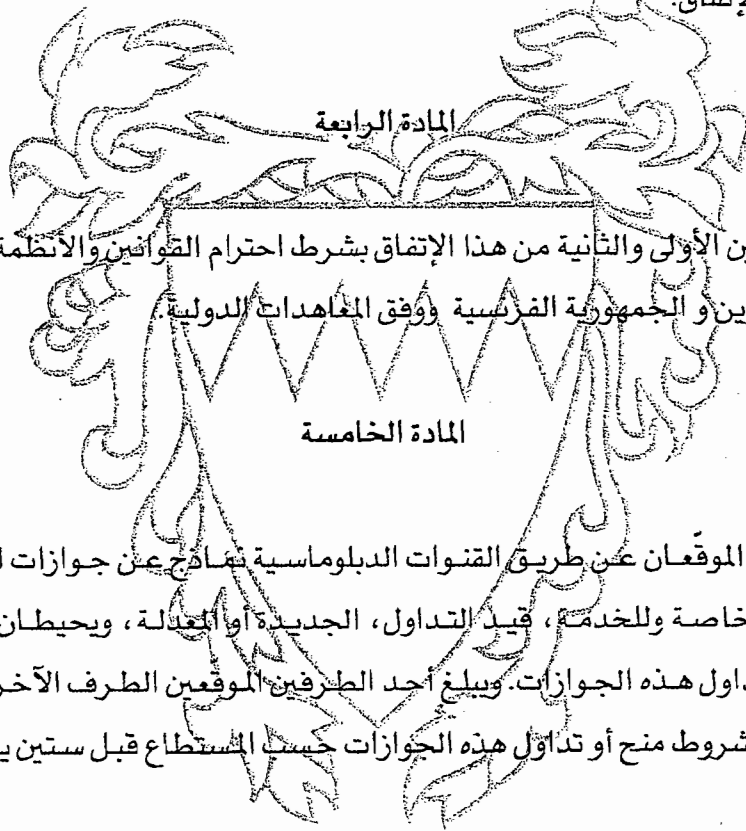 الإتفاق.
المادة الرابعة
الأولى والثانية من هذا الإتفاق بشرط احترام القوانين والأنظمة
و الجمهورية الفرنسية ووفق المعاهدات الدولية.
المادة الخامسة
الموقّعان عن طريق القنوات الدبلوماسية نماذج عن جوازات
خاصة وللخدمة، قيد التداول، الجديدة أو المعدلة، ويحيطان
هذه الجوازات. ويبلغ أحد الطرفين الموقعين الطرف الآخر
شروط منح أو تداول هذه الجوازات حسب المستطاع قبل ستين